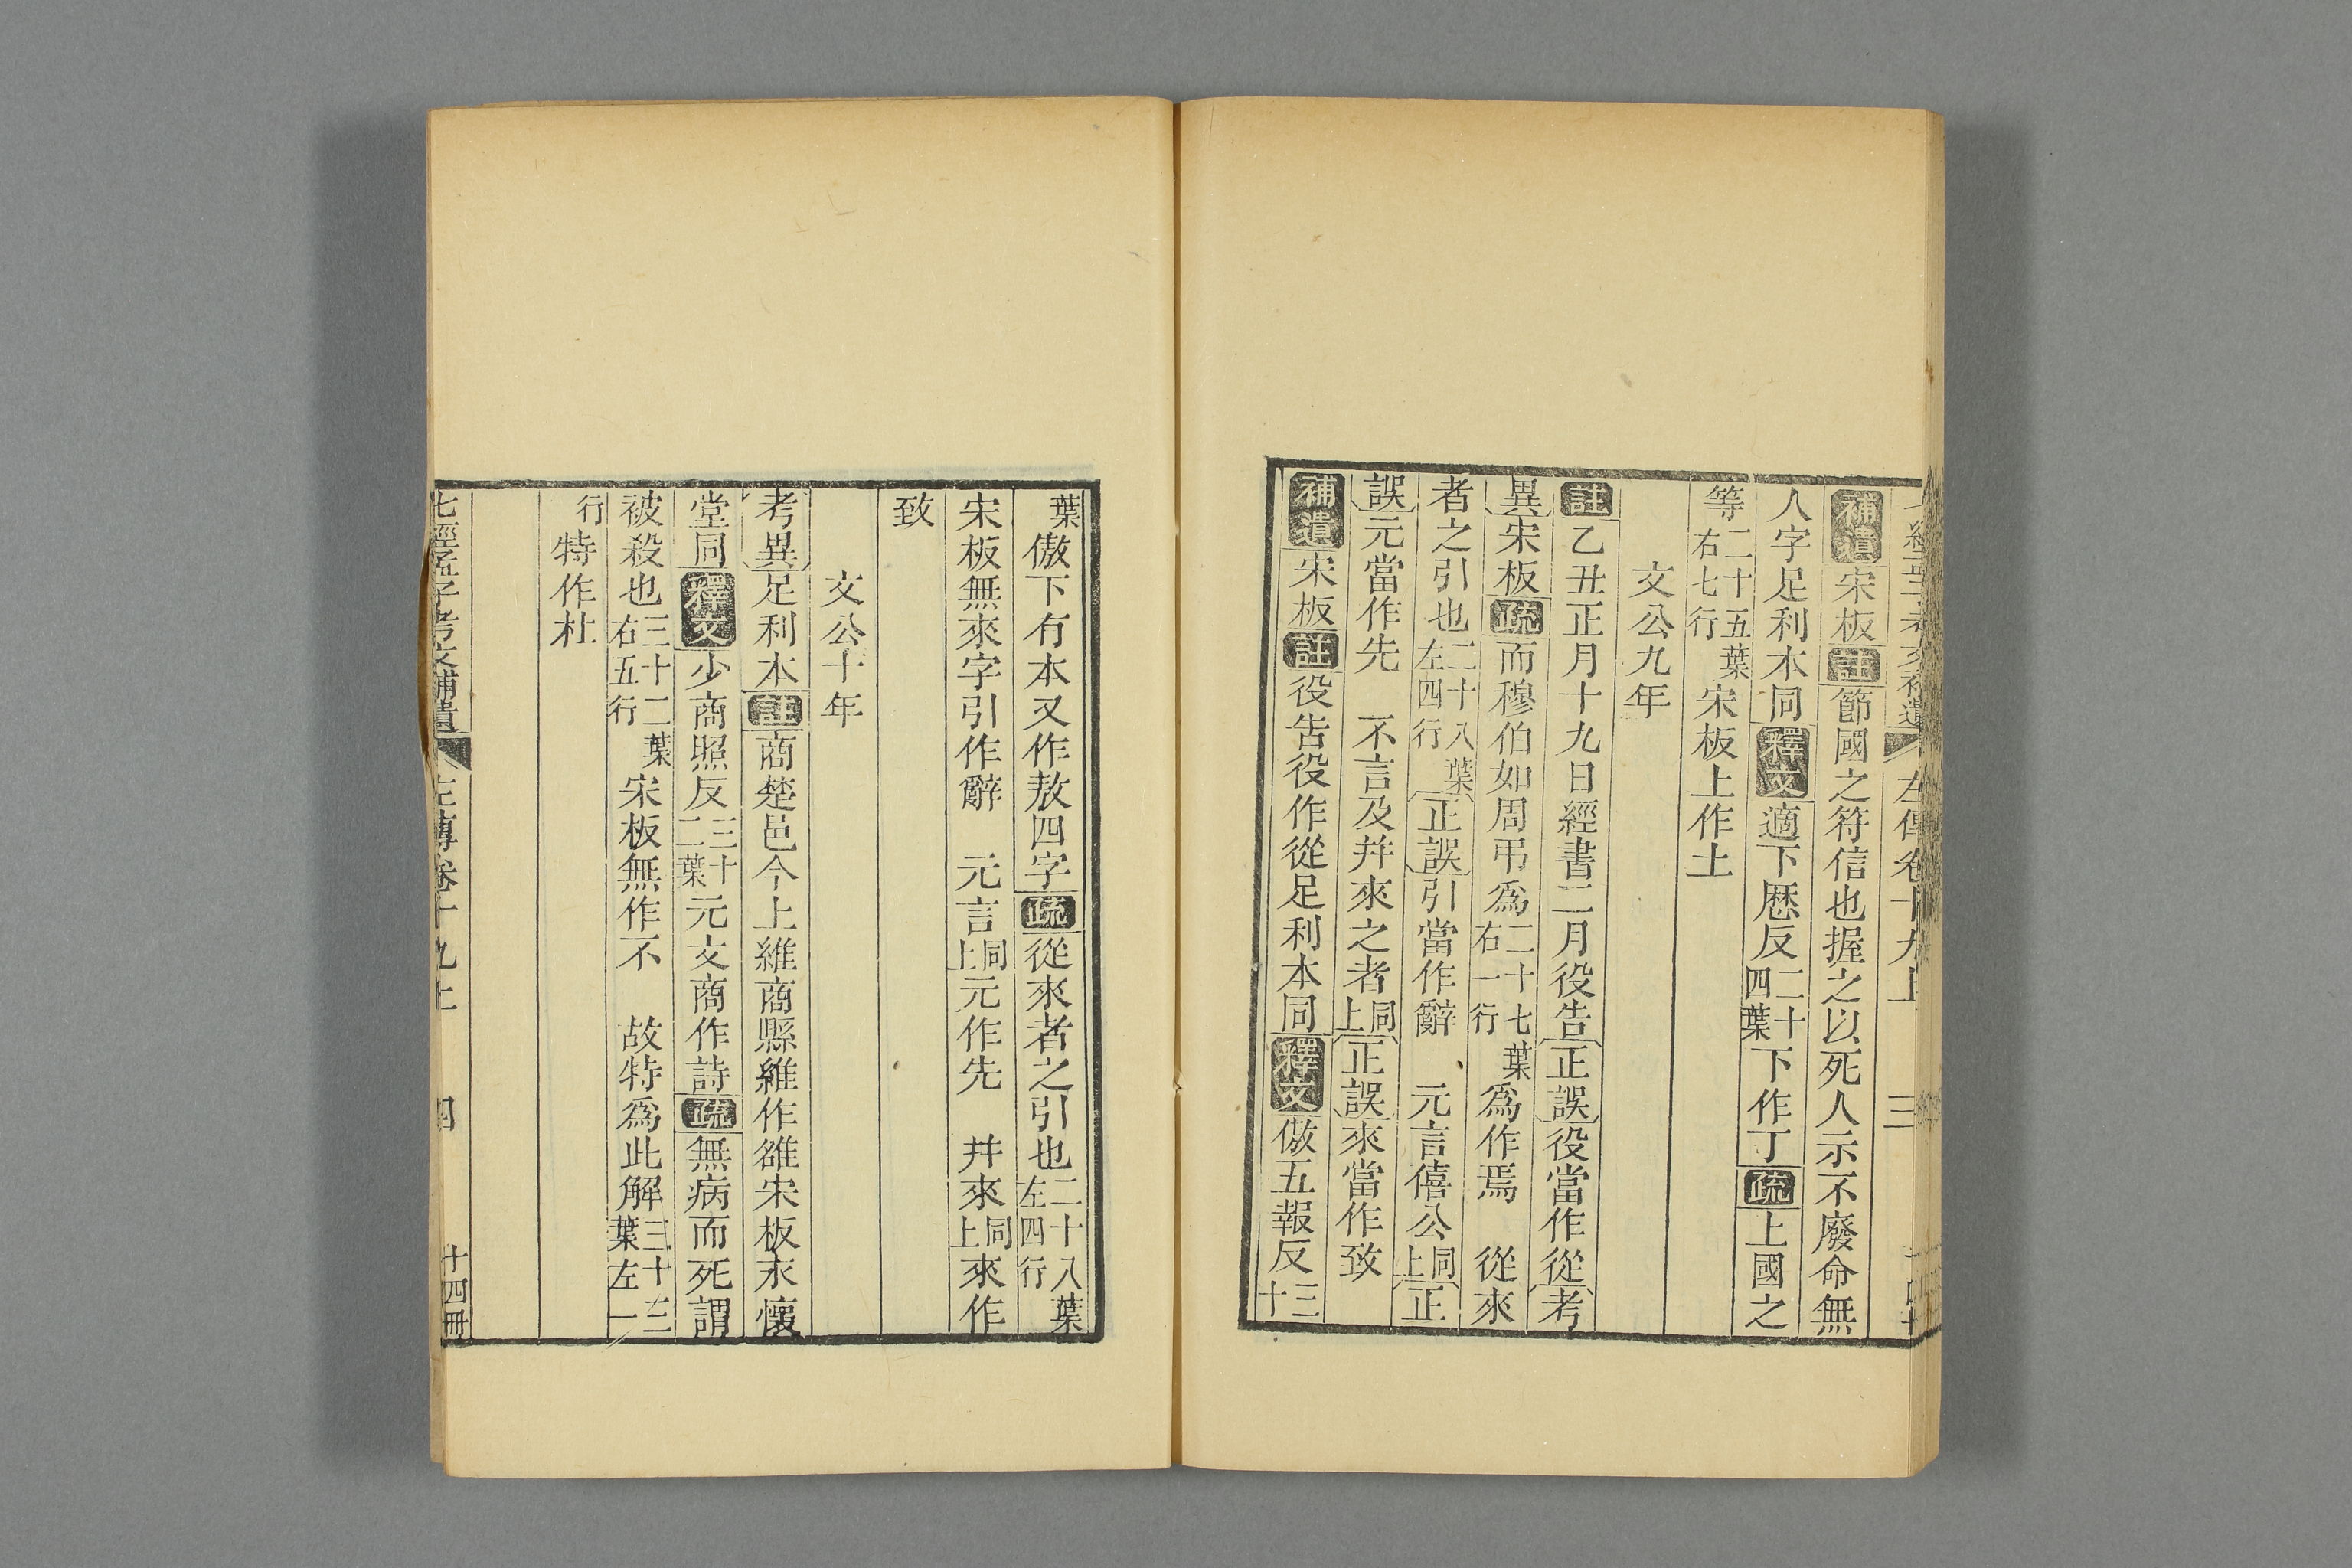 補遺宋板註節國之符信也握之以死人示不廢命無
人字足利本同釋文適下厯反二十四葉下作丁疏上國之
等二十五葉右七行宋板上作土
文公九年
註乙丑正月十九日經書二月役告正誤役當作從考
異宋板疏而穆伯如周弔爲二十七葉右一行爲作焉　從來
者之引也二十八葉左四行正誤引當作辭　元言僖公同上正
誤元當作先　不言及幷來之者同上正誤來當作致
補遺宋板註役告役作從足利本同釋文傲五報反三十
葉傲下有本又作敖四字疏從來者之引也二十八葉左四行
宋板無來字引作辭　元言同上元作先　幷來同上來作
致
文公十年
考異足利本註商楚邑今上維商縣維作雒宋板永懷
堂同釋文少商照反三十二葉元文商作詩疏無病而死謂
被殺也三十二葉右五行宋板無作不　故特爲此解三十三葉左一
行特作杜
七經孟子考文補遺　左傳卷十九上　四　十四冊